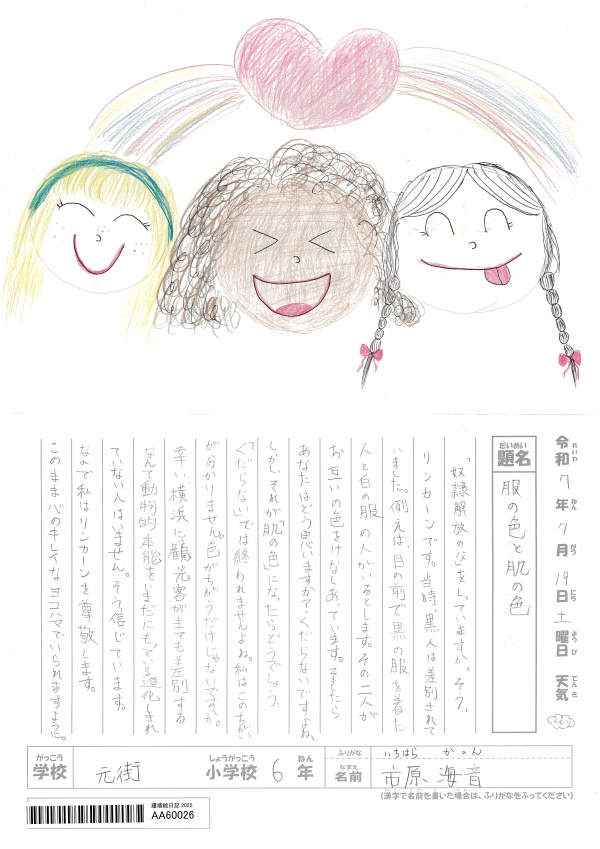 令和7年7月19日土曜日 天気
れいわ ねん がつ にち ようび てんき
だいめい
題名
服の色と肌の色
「奴隷解放の父」をしっていますか。そう、
リンカーンです。当時、黒人は差別されて
いました。例えば、目の前で黒の服を着た
人と白の服の人がいるとします。その二人が
お互いの色をけなしあっています。そしたら
あなたはどう思いますか?くだらないですよね。
しかし、それが「肌の色」になったらどうでしょう。
「くだらない」では終われませんよね。私はこのちがい
が分かりません。色がちがうだけじゃないですか。
幸い、横浜に観光客が来ても差別する
なんて動物的本能をいまだにもっている進化しきれ
ていない人はいません。そう信じています。
なので私はリンカーンを尊敬します。
このまま心のキレイなヨコハマでいられますように。
がっこう しょうがっこう ねん
学校 元街 小学校 6年
ふりがな いちはら かのん
なまえ
名前 市原 海音
(漢字で名前を書いた場合は、ふりがなをふってください)
環境絵日記 2025
AA60026